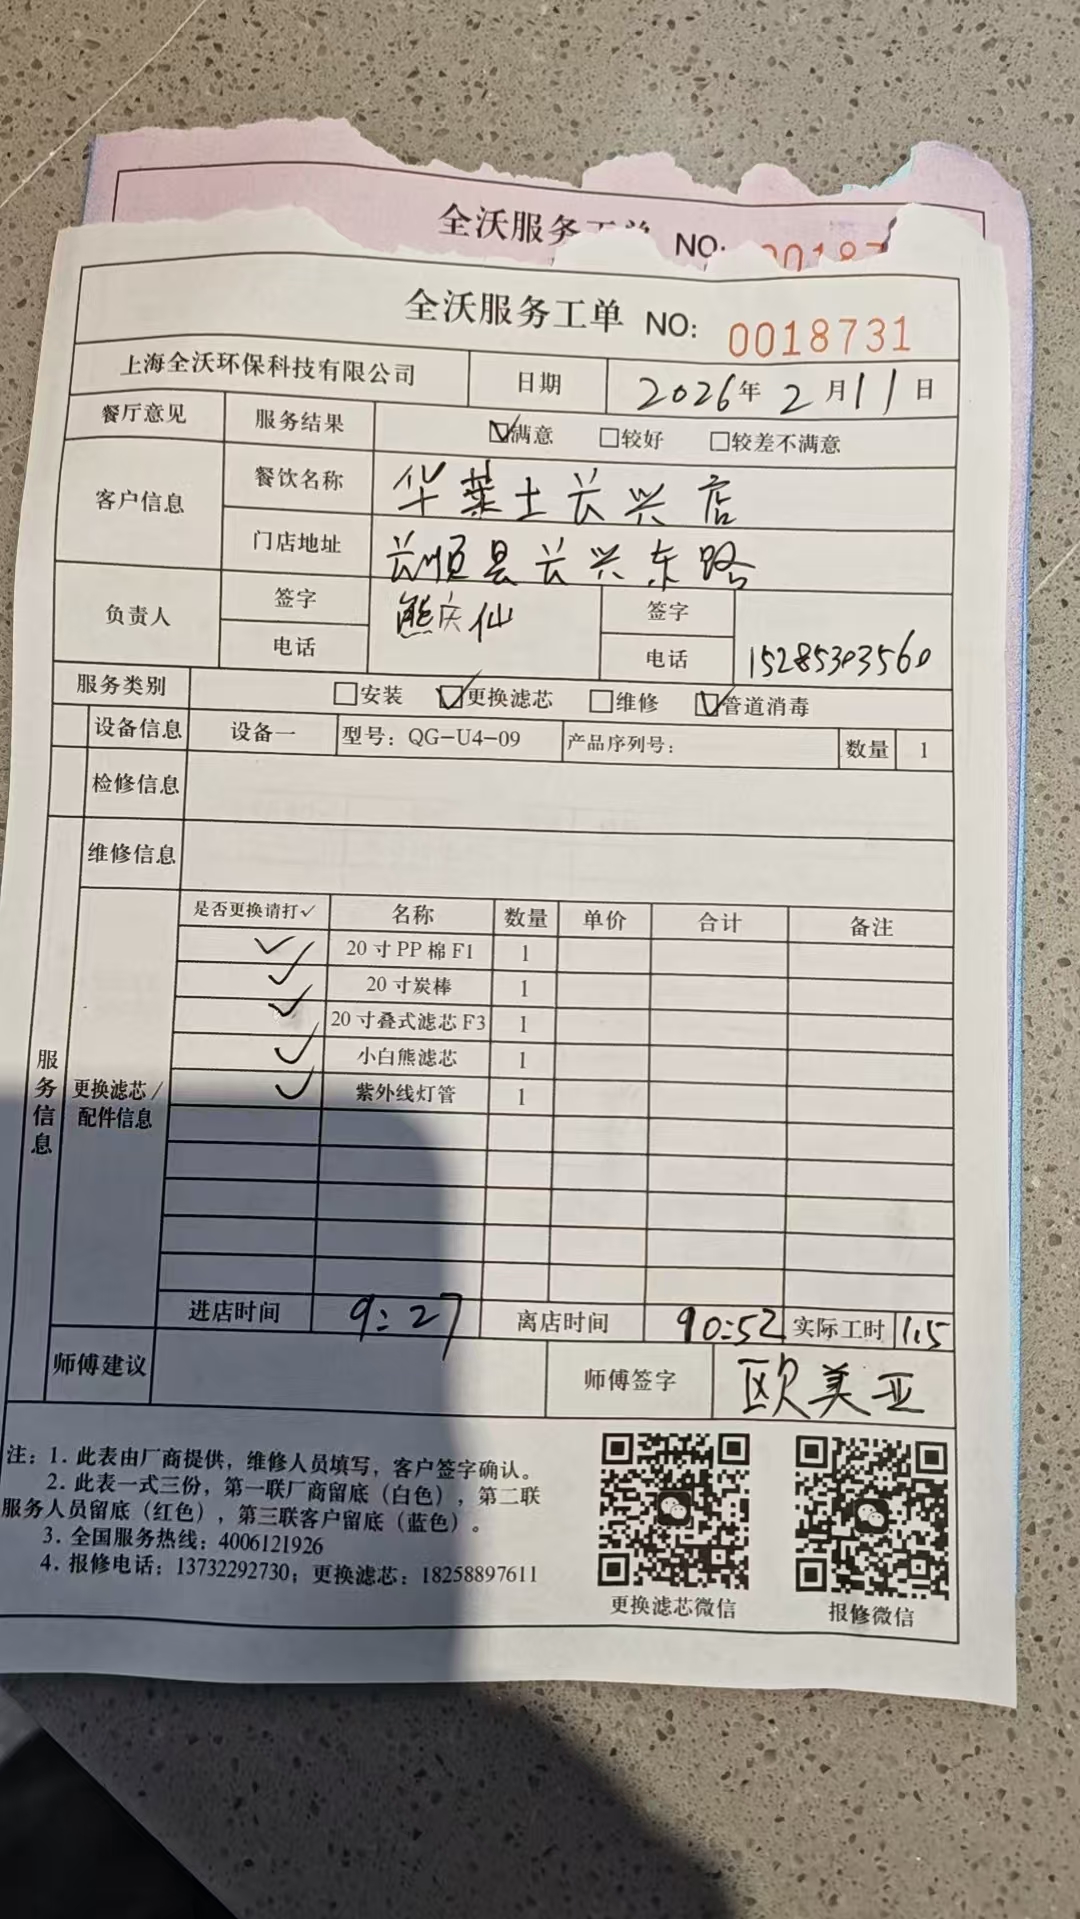 全沃服务工单 NO: 00187
全沃服务工单 NO: 0018731
上海全沃环保科技有限公司 日期 2026年 2月11日
餐厅意见 服务结果 ☑满意 □较好 □较差不满意
客户信息 餐饮名称 华莱士长兴店
门店地址 长顺县长兴东路
负责人 签字 熊庆仙 签字
电话 电话 15285303560
服务类别 □安装 ☑更换滤芯 □维修 ☑管道消毒
设备信息 设备一 型号：QG-U4-09 产品序列号： 数量 1
检修信息
维修信息
服务信息
更换滤芯/配件信息
是否更换请打✓ 名称 数量 单价 合计 备注
✓ 20寸PP棉F1 1
✓ 20寸炭棒 1
✓ 20寸叠式滤芯F3 1
✓ 小白熊滤芯 1
✓ 紫外线灯管 1
进店时间 9:27 离店时间 90:52 实际工时 1.5
师傅建议 师傅签字 欧美亚
注：1. 此表由厂商提供，维修人员填写，客户签字确认。
2. 此表一式三份，第一联厂商留底（白色），第二联
服务人员留底（红色），第三联客户留底（蓝色）。
3. 全国服务热线：4006121926
4. 报修电话：13732292730；更换滤芯：18258897611
更换滤芯微信 报修微信